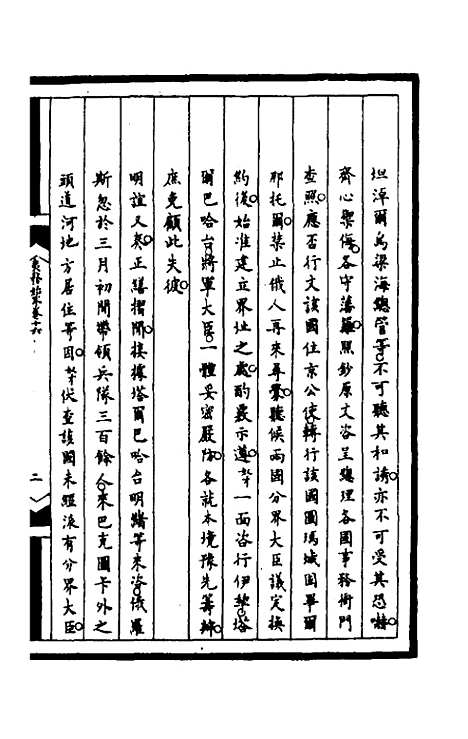 烜淖爾烏梁海總管等不可聽其和誘亦不可受其恐嚇
齊心禦侮各守藩籬照鈔原文咨呈總理各國事務衙門
查照應否行文該國住京公使轉行該國圖瑪城固畢爾
那托爾禁止俄人再來尋釁聽候兩國分界大臣議定換
約後始准建立界址之處酌覈示遵等一面咨行伊犂塔
爾巴哈台將軍大臣一體妥密嚴防各就本境豫先籌辦
庶免顧此失彼
明誼又奏正繕摺間接據塔爾巴哈台明緒等來洛俄羅
斯忽於三月初間帶領兵隊三百餘人來巴克圖卡外之
頭道河地方居住等因等伏查該國未經派有分界大臣
二